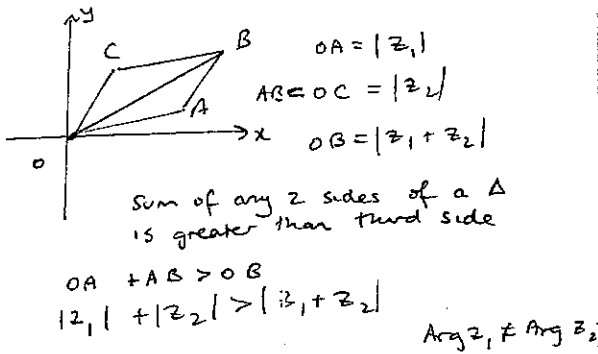 y
C
B
A
x
O
OA = |z₁|
AB = OC = |z₂|
OB = |z₁ + z₂|
Sum of any 2 sides of a Δ
is greater than third side
OA + AB > OB
|z₁| + |z₂| > |z₁ + z₂|
Arg z₁ ≠ Arg z₂